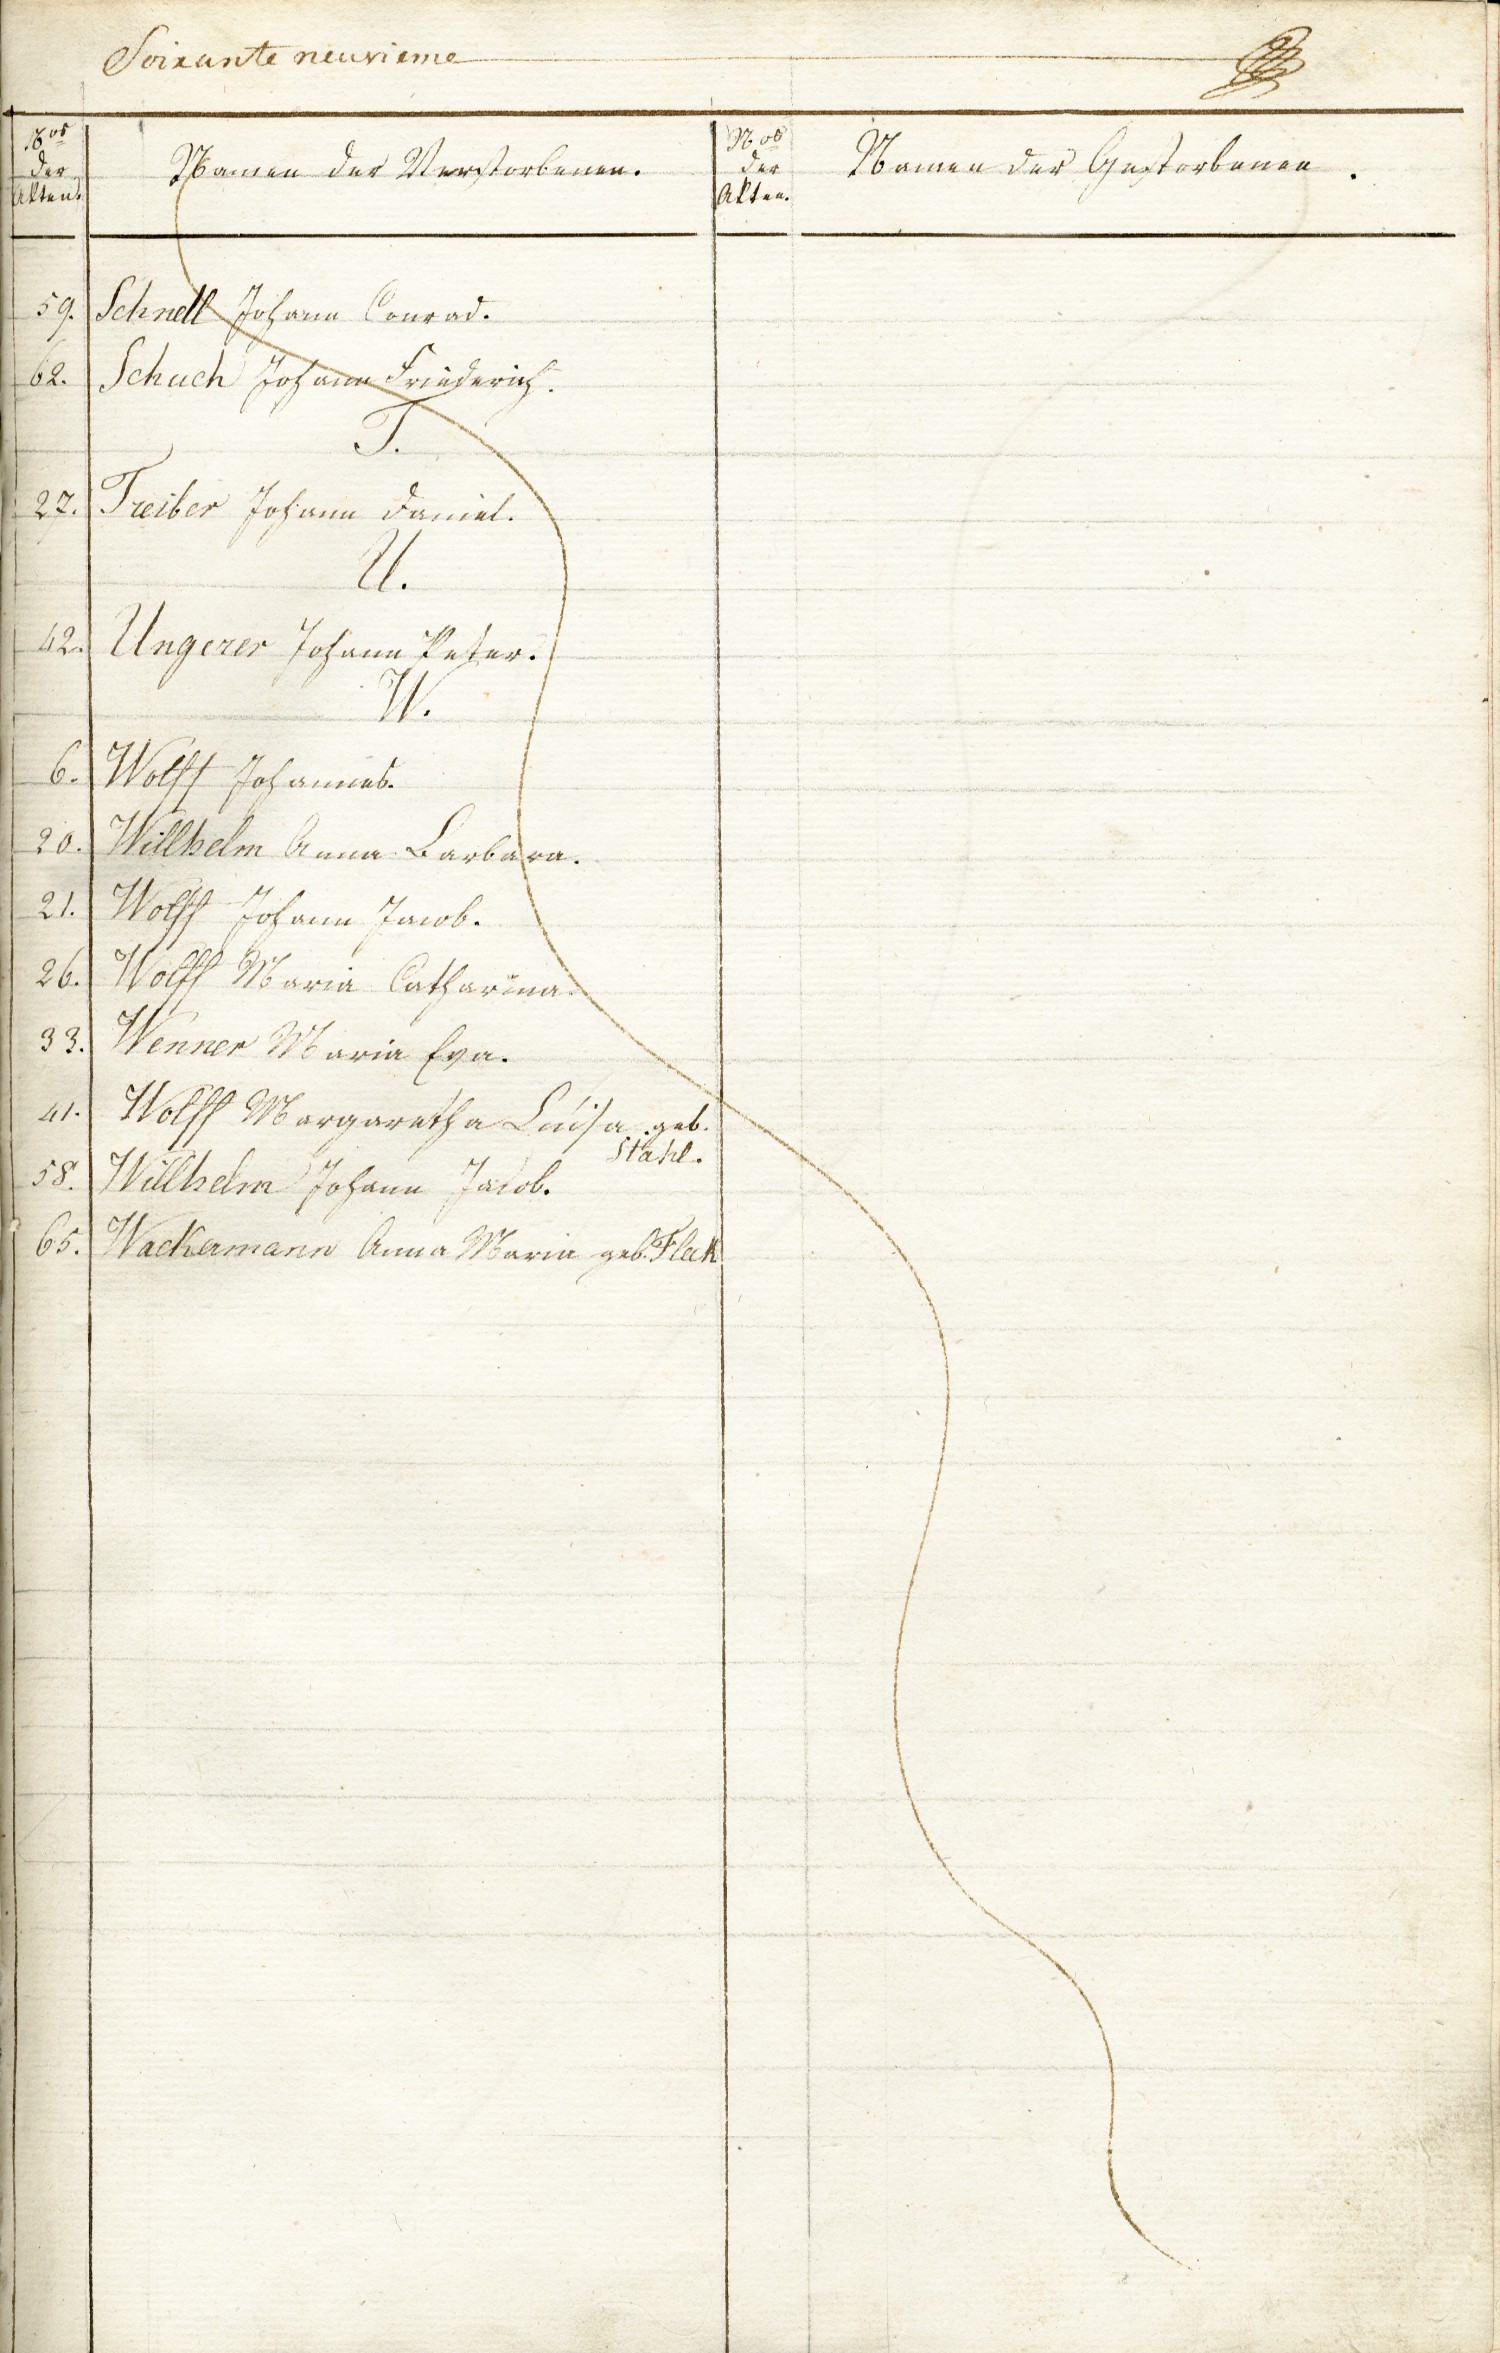 Soixante neuvieme
Nos der Akten.
Namen der Verstorbenen.
Nos der Akten.
Namen der Gestorbenen.
59. Schnell Johann Conrad.
62. Schuch Johann Friederich.
T.
27. Treiber Johann Daniel.
U.
42. Ungerer Johann Peter.
W.
6. Wolff Johannes.
20. Willhelm Anna Barbara.
21. Wolff Johann Jacob.
26. Wolff Maria Catharina.
33. Wenner Maria Eva.
41. Wolff Margaretha Luisa geb.
Stahl.
58. Willhelm Johann Jacob.
65. Wackermann Anna Maria geb. Fleck